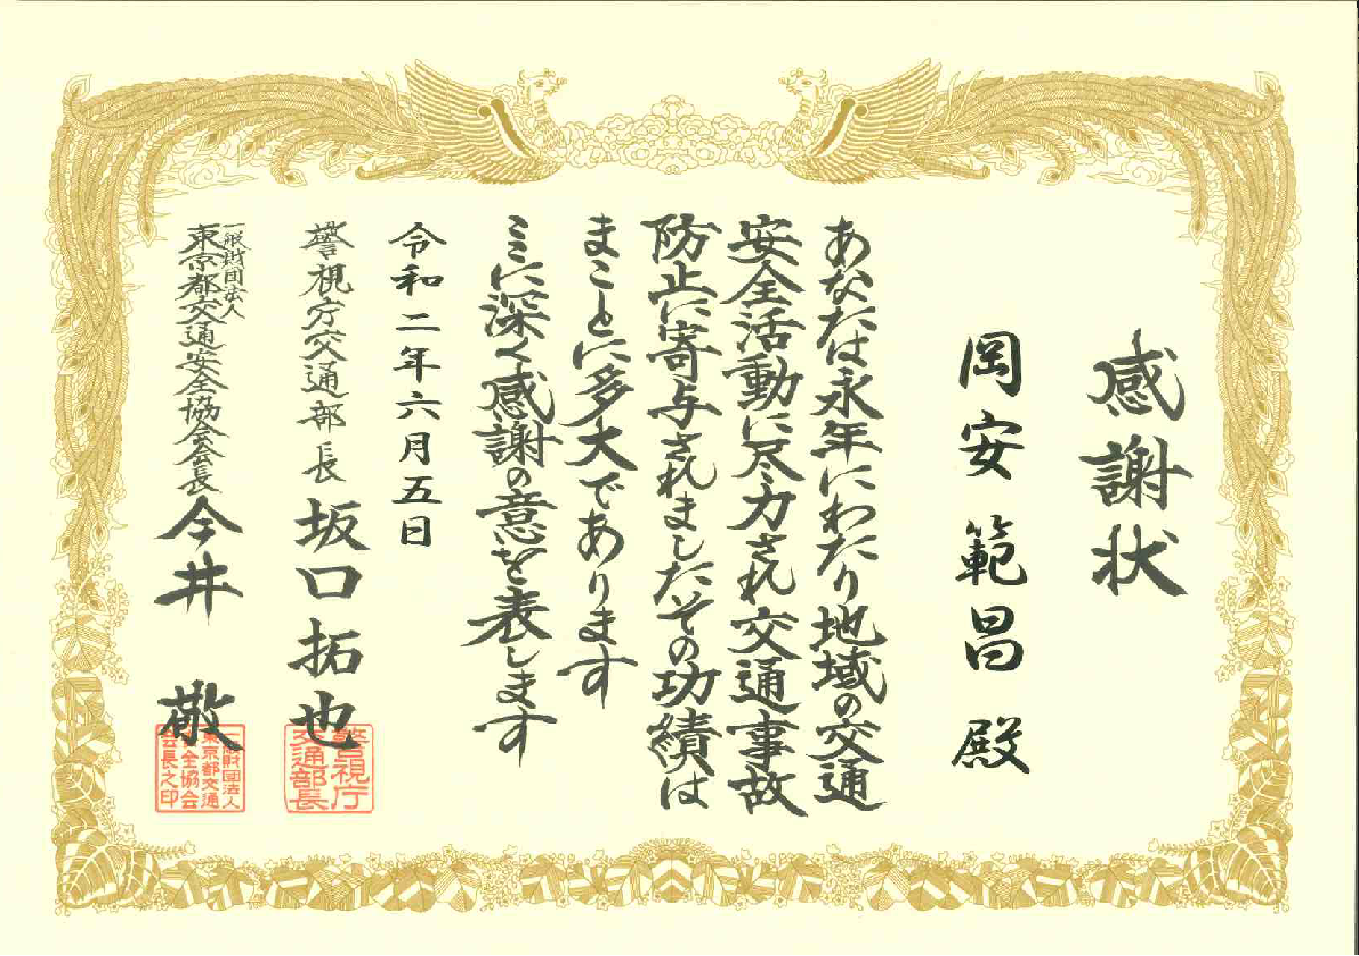 感謝状
岡安範昌殿
あなたは永年にわたり地域の交通
安全活動に尽力され交通事故
防止に寄与されましたその功績は
まことに多大であります
ミに深く感謝の意を表します
令和二年六月五日
警視庁交通部長 坂口拓也
一般財団法人
東京都交通安全協会会長 今井 敬
警視庁
交通部長
一般財団法人
東京都交通
安全協会
会長之印